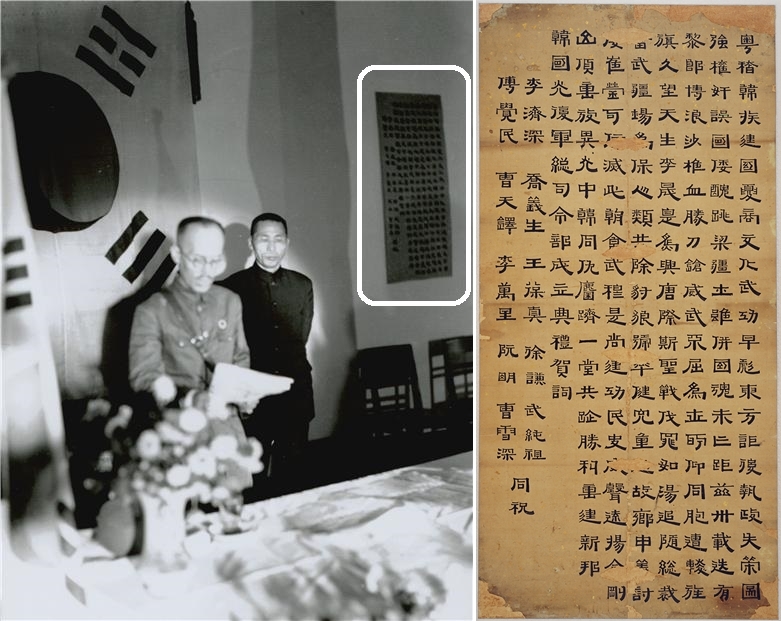 粤稽韓族建國夐爾文化武功早彪東方詎後執政失策圖
強權奸誤國倭醜跳梁疆土雖併國魂未亡距益卅載迭有
黎郎博浪沙椎血勝刀鎗威武不屈為世所仰同胞遭轢旌
旗久望天生李晟是為興唐際斯聖戰如湯追隨總裁
武疆場為保類共除豺狼歸健兒重故鄉申義討
崔瑩可滅此朝食武穆是尚建功民史聲遠揚金剛
頂族異光中韓同仇麕躋一堂共勝利重建新邦
韓國光復軍總司令部成立典禮賀詞
李濟深 喬義生 王葆真 徐謙 武純祖
傅覺民 曹天鐸 李萬里 阮明 曹雪深
同祝